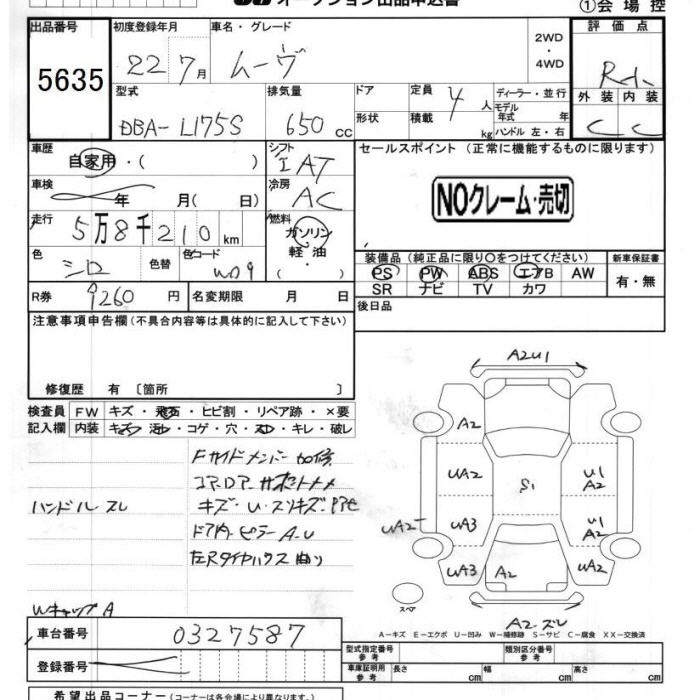 オークション出品申込書
①会場控
出品番号 初度登録年月 車名・グレード 評価点
5635 22 7月 ムーヴ 2WD・4WD
型式 排気量 ドア 定員 4人 ディーラー・並行 外装 内装
DBA-L175S 650cc 形状 積載 kg モデル年式 年 C C
ハンドル 左・右
車歴 自家用・( ) シフト IAT セールスポイント (正常に機能するものに限ります)
車検 年 月( 日) 冷房 AC NOクレーム・売切
走行 5万8千210km 燃料 ガソリン 軽油
色 シロ 色替 色コード W09 装備品 (純正品に限り○をつけてください) 新車保証書
PS PW ABS エアB AW 有・無
SR ナビ TV カワ
R券 9260円 名変期限 月 日 後日品
注意事項申告欄(不具合内容等は具体的に記入して下さい)
修復歴 有 〔箇所 〕
検査員 FW キズ・飛石・ヒビ割・リペア跡・×要
記入欄 内装 キズ・汚れ・コゲ・穴・スレ・キレ・破レ
Fサイドメンバー加修
ハンドルスレ
キズ・U・スリキズ
ドア内ピラーA-U
左Rタイヤハウス曲り
WキャップA
A2U1
A2
UA2 S1 U1 A2
UA2 UA3 U1 A2
UA3 A2 UA2
スペア
A2-ズレ
A-キズ E-エクボ U-凹み W-補修跡 S-サビ C-腐食 XX-交換済
車台番号 0327587
登録番号
型式指定番号 参考 類別区分番号 参考
車庫証明用 参考 長さ cm 幅 cm 高さ cm
希望出品コーナー (コーナーは各会場により異なります。)